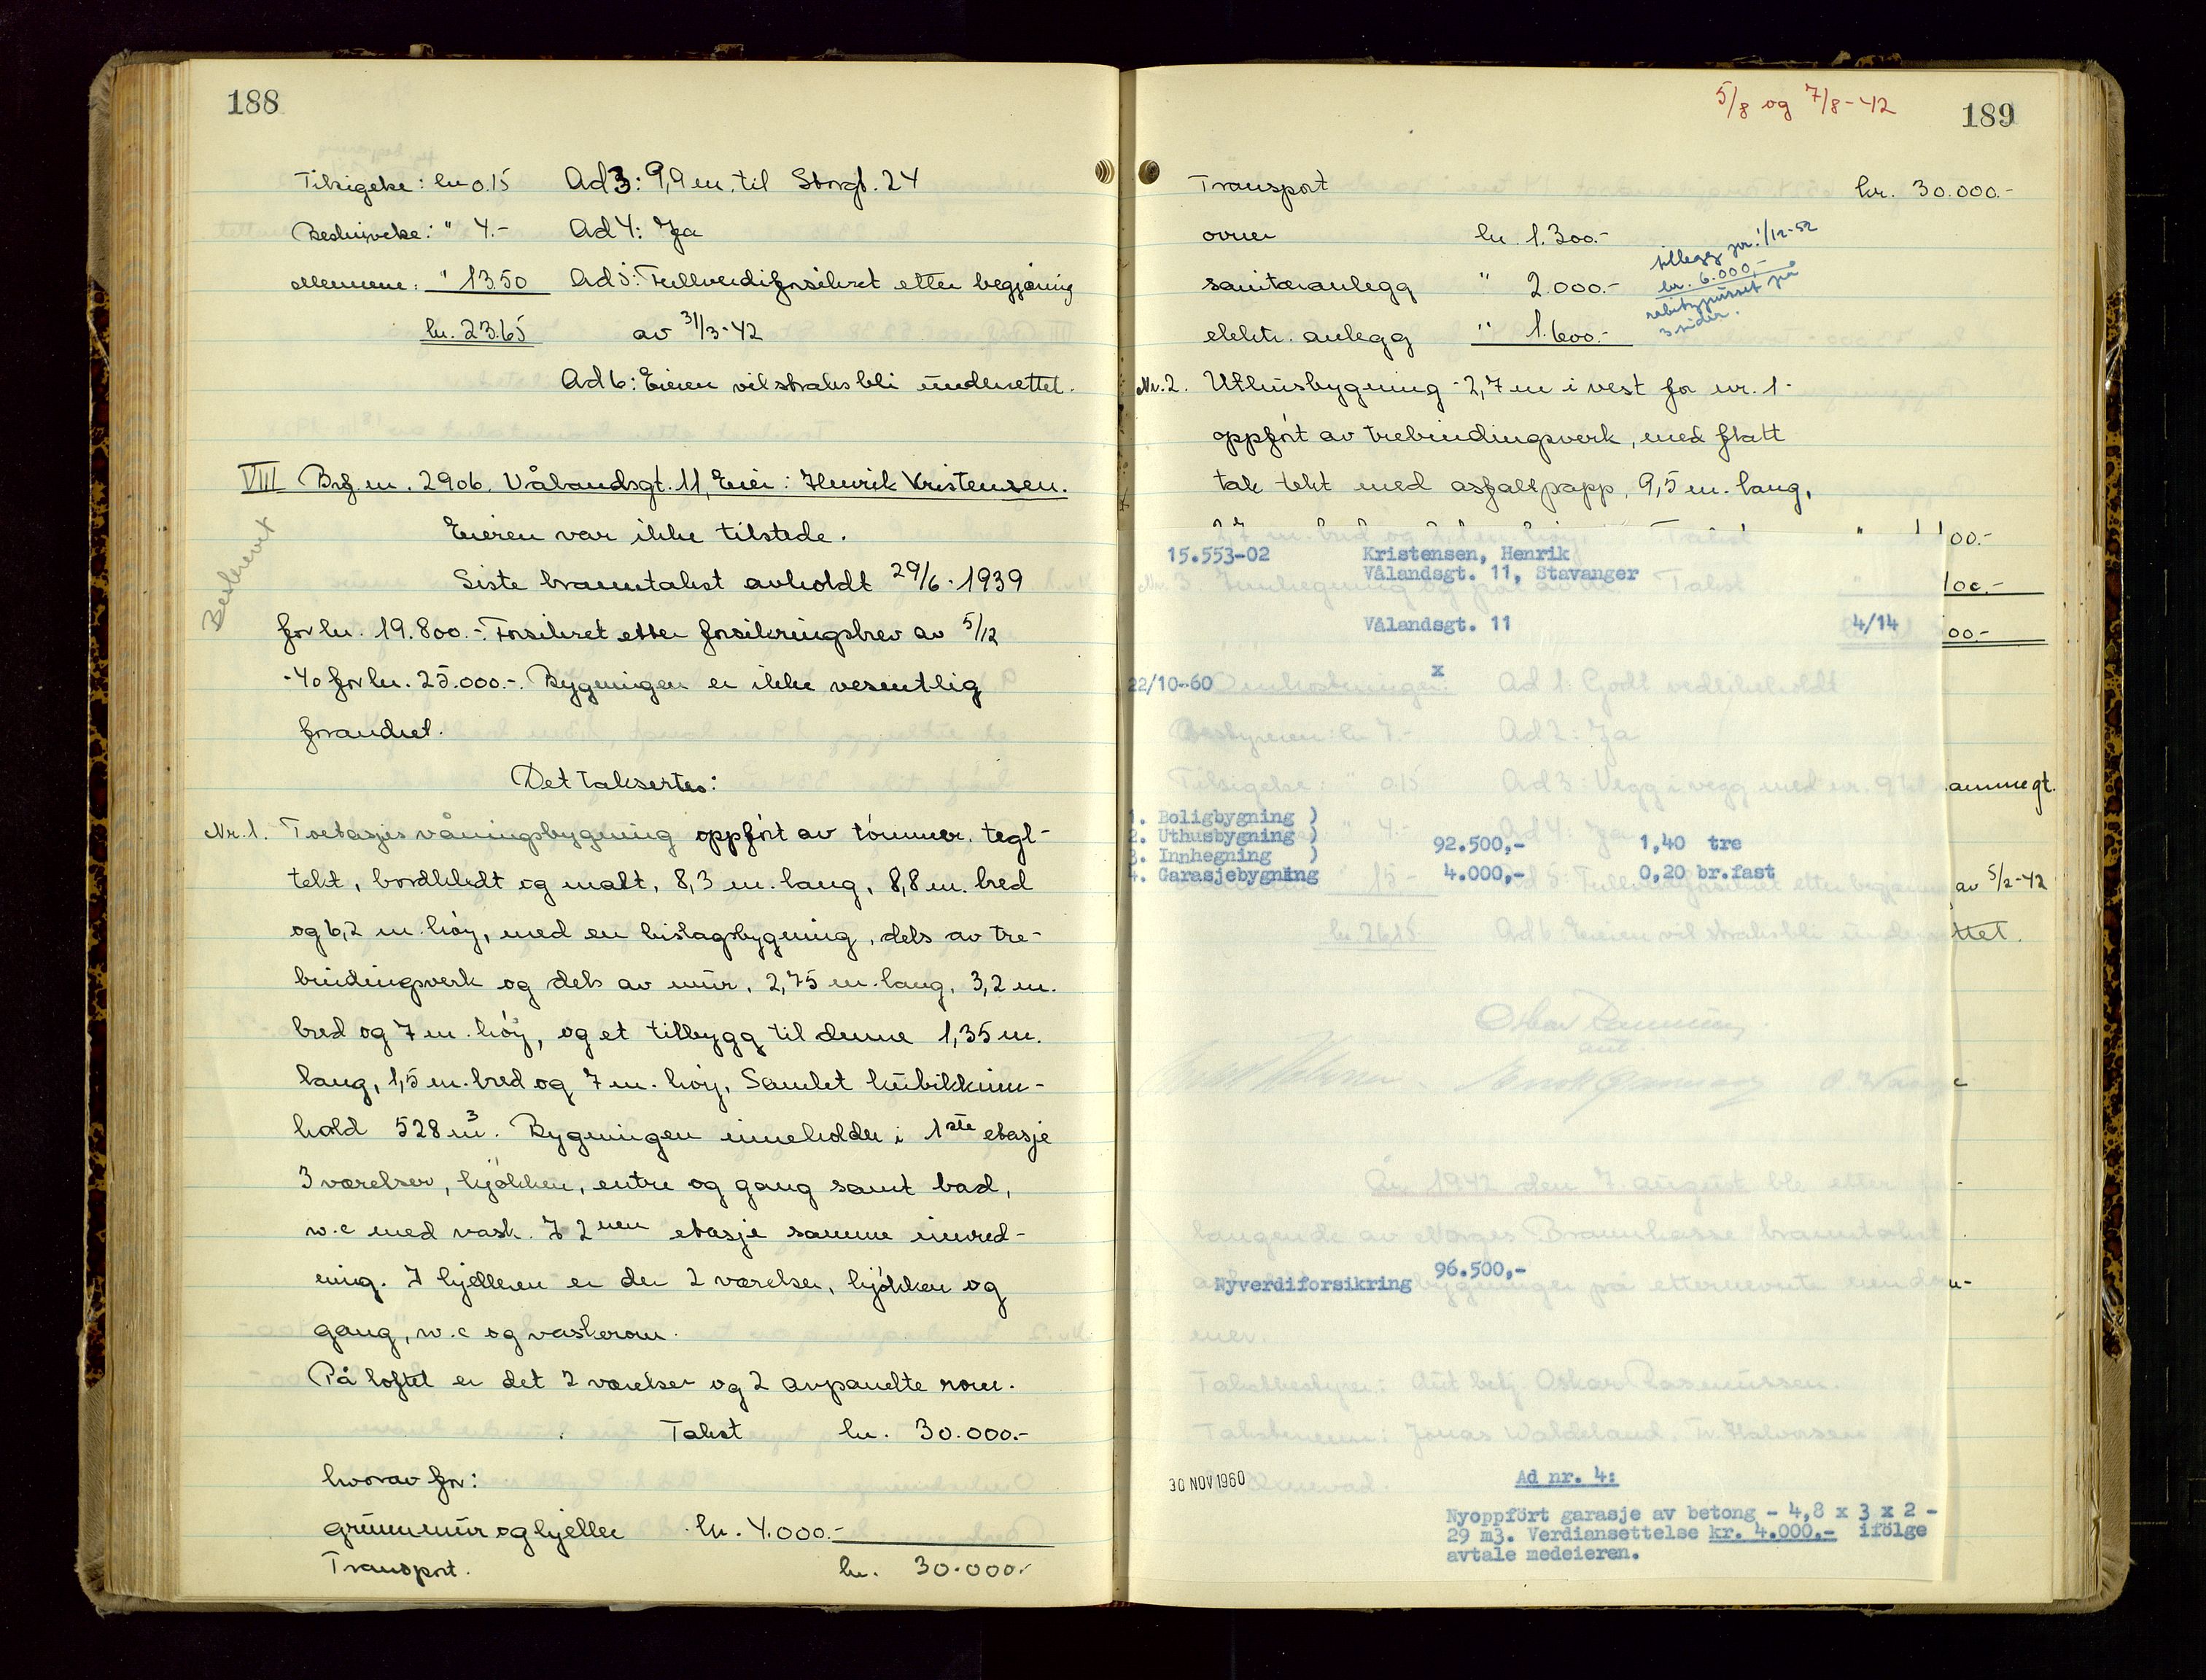 188
Tilsigelse: kr 0.15 Ad 3: 9,9 m. til Storgt. 24
Beskrivelse: " 4.- Ad 4: Ja
mennene: " 13.50 Ad 5: Fullverdiforsikret etter begjæring
kr. 23.65 av 31/3-42
Ad 6: Eieren vil straks bli underrettet.
VIII Brf. nr. 2906. Vålandsgt. 11, Eier: Henrik Kristensen.
Beskrevet
Eieren var ikke tilstede.
Siste branntakst avholdt 29/6-1939
for kr. 19.800.-. Forsikret etter forsikringsbrev av 5/12
-40 for kr. 25.000.-. Bygningen er ikke vesentlig
forandret.
Det taksertes:
Nr. 1. Toetasjes våningsbygning oppført av tømmer, tegl-
tekt, bordkledt og malt, 8,3 m. lang, 8,8 m. bred
og 6,2 m. høy, med en bislagsbygning, dels av tre-
bindingsverk og dels av mur, 2,75 m. lang, 3,2 m.
bred og 7 m. høy, og et tilbygg til denne 1,35 m.
lang, 1,5 m. bred og 7 m. høy. Samlet kubikkinn-
hold 528 m3. Bygningen inneholder i 1ste etasje
3 værelser, kjøkken, entre og gang samt bad,
w.c med vask. I 2nen etasje samme innred-
ning. I kjelleren er der 2 værelser, kjøkken og
gang, w.c og vaskerom.
På loftet er det 2 værelser og 2 avpanelte rom.
Takst kr. 30.000.-
hvorav for:
grunnmur og kjeller kr. 4.000.-
Transport. kr. 30.000.-
5/8 og 7/8-42 189
Transport kr. 30.000.-
ovner kr. 1.300.-
sanitæranlegg " 2.000.-
elektr. anlegg " 1.600.-
tillegg pr. 1/12-52
kr. 6.000,-
rabitzpusset på
3 sider.
Nr. 2. Uthusbygning - 2,7 m i vest for nr. 1 -
oppført av trebindingsverk, med flatt
tak tekt med asfaltpapp, 9,5 m. lang,
2,7 m. bred og 2,2 m. høy. Takst " 1100.-
15.553-02 Kristensen, Henrik
Vålandsgt. 11, Stavanger
Nr. 3. Innhegning og port av tre Takst 100.-
Vålandsgt. 11 4/14 00.-
x
22/10-60 Omkostninger: Ad 1: Godt vedlikeholdt
Bestyreren: kr 7.- Ad 2: Ja
Tilsigelse: " 0.15 Ad 3: Vegg i vegg med nr. 9 til ammegt.
1. Boligbygning )
2. Uthusbygning ) 92.500,- 1,40 tre
3. Innhegning )
4. Garasjebygning 4.000,- 0,20 br.fast
" 4.- Ad 4: Ja
" 15.- Ad 5: Fullverdiforsikret etter begjæring av 5/2-42
kr. 26.15 Ad 6: Eieren vil straks bli underrettet.
År 1942 den 7. august ble etter
langende av Norges Brannkasse branntakst
96.500,-
Nyverdiforsikring
bygninger på etternevnte eiendom-
mer.
Takstbestyrer: Aut betj. Oskar Rasmussen.
Takstmenn: Jonas Waldeland, Tr. Halvorsen
30 NOV 1960
Ad nr. 4:
Nyoppført garasje av betong - 4,8 x 3 x 2 -
29 m3. Verdiansettelse kr. 4.000.- ifølge
avtale medeieren.